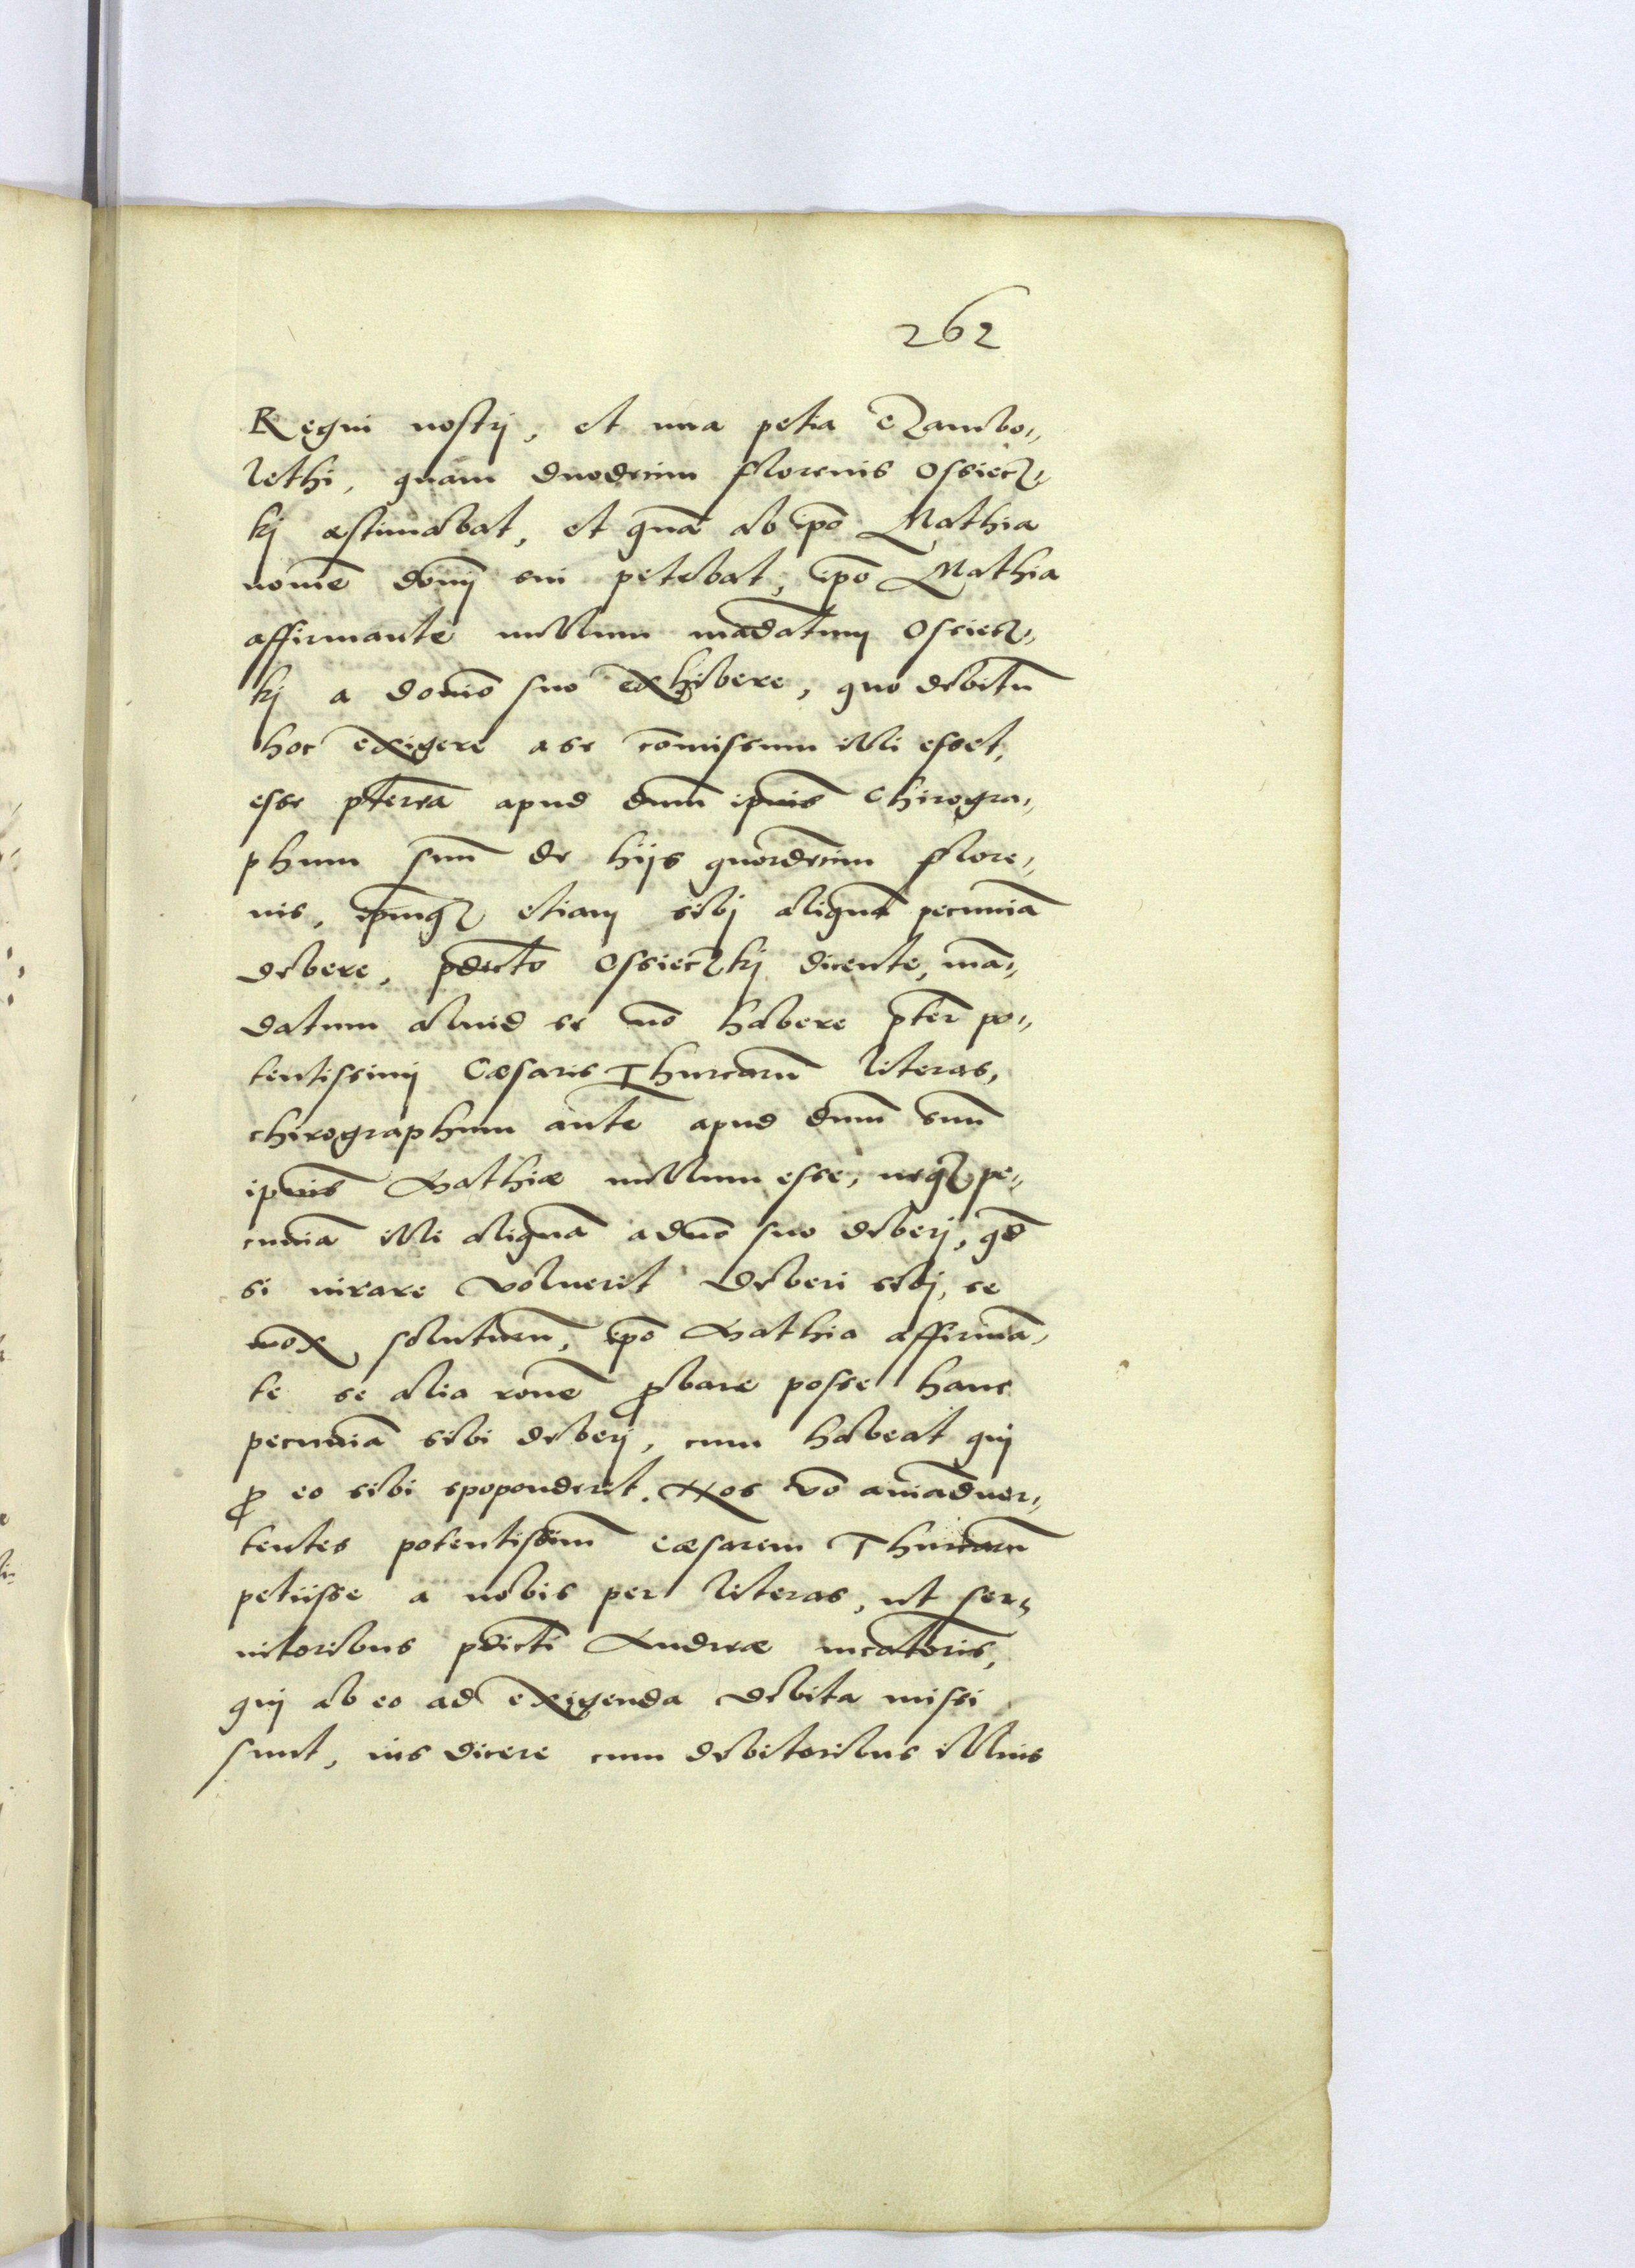 262
Regni nostrj, et una petia Czambo„
lethi, quam duodecim florenis Ossiecz„
kj æstimabat, et quã ab ipõ Mathia
nomiẽ domĩj sui petebat, ipõ Mathia
affirmante nullum mãdatum Ossiecz„
kj a domõ suo exhibere, quo debitũ
hoc exigere a se com̃issum illi esset,
esse p̃terea apud dnum̃ ipĩus Chirogra„
phum suũ de hijs quordecim flore„
nis, ipũmq₃ etiam sibj aliquã pecuniã
debere, p̃dicto Ossieczkj dicente, mã„
datum aliud se nõ habere p̃ter po„
tentissimj Cæsaris Thurcarũ literas,
chirographum aũte apud dnum̃ suũ
ipĩus Mathiæ nullum esse, neq₃ pe„
cuniã illi aliquã a dnõ suo deberj, qd̃
si iurare voluerit deberi sibj, se
mox soluturũ, ipõ Mathia affirmã„
te se alia rone ꝓbare posse hanc
pecuniã sibi deberj, cum habeat quj
ꝓ eo sibi spoponderit. Nos vo animaduer„
tentes potentissimũ Cæsarem Thurcarũ
petiisse a nobis per literas, ut ser„
uitoribus p̃dicti Andreæ mcatoris,
quj ab eo ad exigenda debita missi
sunt, ius dicere cum debitoribus illius